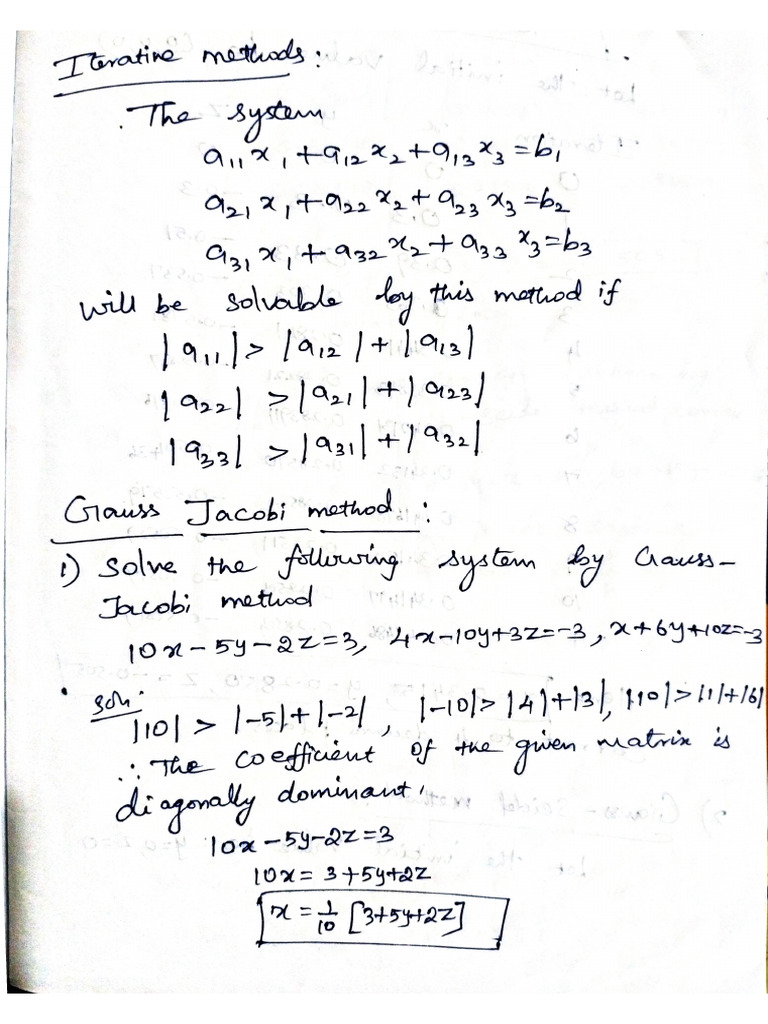 Iterative methods:
The system
a₁₁x₁+a₁₂x₂+a₁₃x₃=b₁
a₂₁x₁+a₂₂x₂+a₂₃x₃=b₂
a₃₁x₁+a₃₂x₂+a₃₃x₃=b₃
will be solvable by this method if
|a₁₁|>|a₁₂|+|a₁₃|
|a₂₂|>|a₂₁|+|a₂₃|
|a₃₃|>|a₃₁|+|a₃₂|
Gauss Jacobi method:
1) Solve the following system by Gauss-
Jacobi method
10x-5y-2z=3, 4x-10y+3z=-3, x+6y+10z=-3
soln:
|10|>|-5|+|-2|, |-10|>|4|+|3|, |10|>|1|+|6|
∴ The coefficient of the given matrix is
diagonally dominant.
10x-5y-2z=3
10x=3+5y+2z
x=1/10[3+5y+2z]